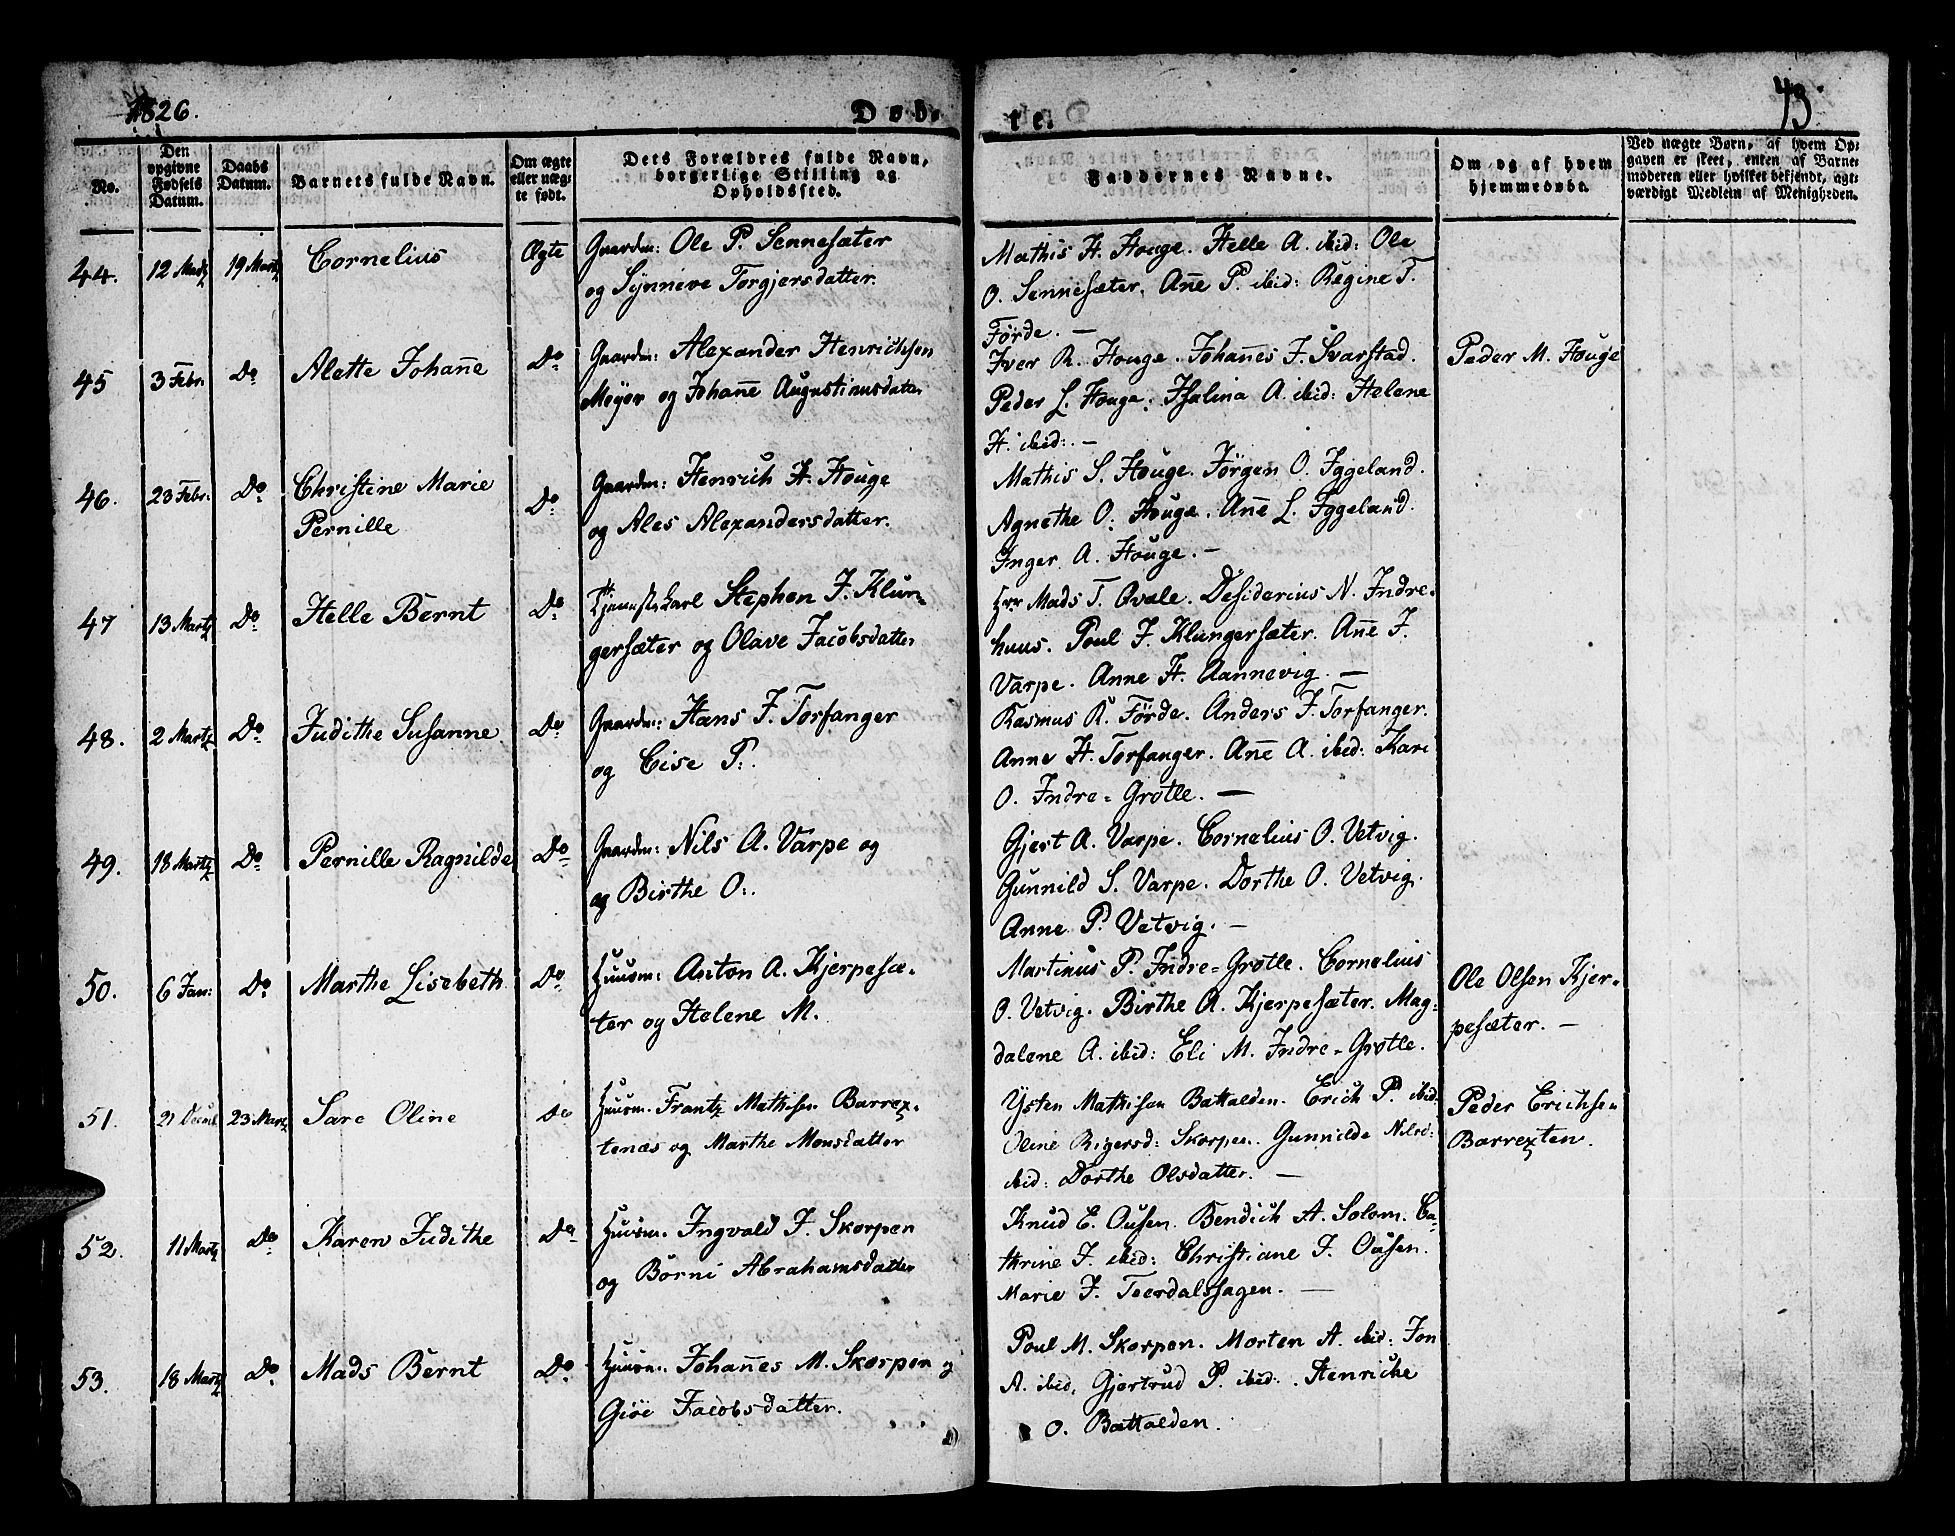 1826.
Døb-
te.
43.
No.
Den opgivne Fødsels Datum.
Daabs Datum.
Barnets fulde Navn.
Om ægte eller uæg- te født.
Dets Forældres fulde Navn, borgerlige Stilling og Opholdssted.
Faddernes Navne.
Om og af hvem hjemmedøbt.
Ved uægte Børn, af hvem Op-
gaven er skeet, enten af Barne-
moderen eller hvilket bekjendt, agt-
værdigt Medlem af Menigheden.
44. 12 Martz 19 Martz Cornelius Ægte Gaardm: Ole P. Sennesæter
og Synneve Torgjersdatter.
Mathis H. Houge. Helle A. ibid: Ole
O. Sennesæter. Añe P. ibid: Regine T.
Förde. —
45 3 Febr. Do Alette Johañe Do Gaardm: Alexander Henrichsen
Meyer og Johañe Augustinusdatter
Iver R. Houge. Johañes J. Svarstad.
Peder L. Houge. Isalina A. ibid: Helene
H. ibid: —
Peder M. Houge
46. 23 Febr. Do Christine Marie
Pernille
Do Gaardm: Henrich H. Houge
og Ales Alexandersdatter.
Mathis S. Houge. Jörgen O. Iggeland.
Agnethe O. Houge. Añe L. Iggeland.
Inger A. Houge. —
47 13 Martz Do Helle Bernt Do Tjenestekarl Stephen J. Klun-
gersæter og Olave Jacobsdatter
Hrr Mads T. Qvale. Desiderius N. Indre-
huus. Poul J. Klungersæter. Añe J.
Varpe. Anne H. Aannevig. —
48. 2 Martz Do Judithe Susanne Do Gaardm: Hans J. Torfanger
og Cise P.
Rasmus R. Förde. Anders J. Torfanger.
Anne H. Torfanger. Añe A. ibid: Kari
O. Indre-Grotle. —
49. 18 Martz Do Pernille Ragnilde Do Gaardm: Nils A. Varpe og
og Birthe O.
Gjert A. Varpe. Cornelius O. Vetvig.
Gunnild S. Varpe. Dorthe O. Vetvig.
Anne P. Vetvig. —
50. 6 Jan: Do Marthe Lisebeth Do Huusm: Anton A. Kjerpesæ-
ter og Helene M.
Martinus P. Indre-Grotle. Cornelius
O. Vetvig. Birthe A. Kjerpesæter. Mag-
dalene A. ibid: Eli M. Indre-Grotle.
Ole Olsen Kjer-
pesæter. —
51. 21 Decmb. 23 Martz Sare Oline Do Huusm. Frantz Mathisen Barrex-
tenæs og Marthe Monsdatter
Ysten Mathisen Battalden. Erich P. ibid:
Oline Rigersd: Skorpen. Gunnilde Nilsd:
ibid: Dorthe Olsdatter. —
Peder Erichsen
Barrexten.
52. 11 Martz Do Karen Judithe Do Huusm. Ingvald J. Skorpen
og Börni Abrahamsdatter
Knud E. Ousen. Bendich A. Solem. Ca-
thrine J. ibid: Christiane J. Ousen.
Marie J. Teerdalshagen. —
53. 18 Martz Do Mads Bernt Do Huusm: Johañes M. Skorpen og
Giöe Jacobsdatter.
Poul M. Skorpen. Morten A. ibid: Jon
A. ibid, Gjertrud P. ibid: Henriche
O. Battalden.